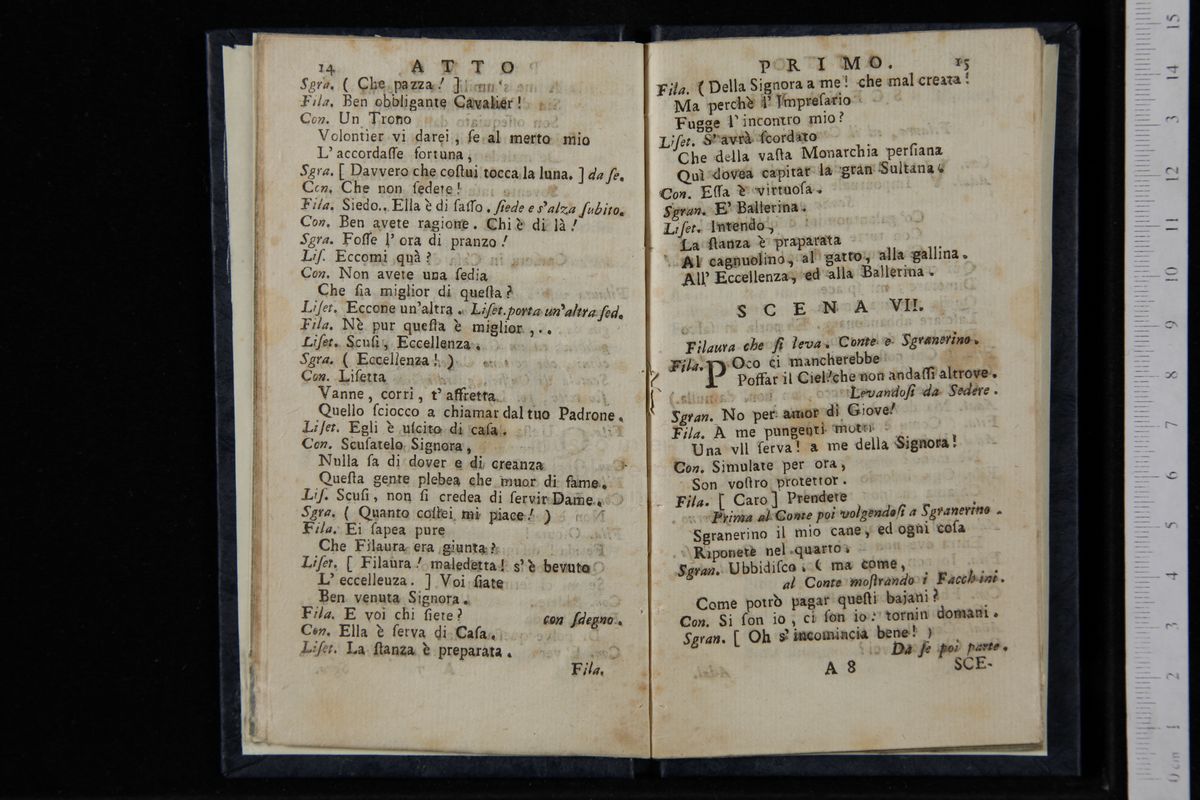 14 ATTO
Sgra. ( Che pazza! ]
Fila. Ben obbligante Cavalier!
Con. Un Trono
Volontier vi darei, ſe al merto mio
L'accordaſſe fortuna,
Sgra. [ Davvero che coſtui tocca la luna. ] da ſe.
Con. Che non ſedete!
Fila. Siedo.. Ella è di ſaſſo. ſiede e s'alza ſubito.
Con. Ben avete ragione. Chi è di là!
Sgra. Foſſe l'ora di pranzo!
Liſ. Eccomi quà?
Con. Non avete una ſedia
Che ſia miglior di queſta?
Liſet. Eccone un'altra. Liſet. porta un'altra ſed.
Fila. Nè pur queſta è miglior,..
Liſet. Scuſi, Eccellenza.
Sgra. ( Eccellenza! )
Con. Liſetta
Vanne, corri, t'affretta
Quello ſciocco a chiamar dal tuo Padrone.
Liſet. Egli è uſcito di caſa.
Con. Scuſatelo Signora,
Nulla ſa di dover e di creanza
Queſta gente plebea che muor di fame.
Liſ. Scuſi, non ſi credea di ſervir Dame.
Sgra. ( Quanto coſtei mi piace! )
Fila. Ei ſapea pure
Che Filaura era giunta?
Liſet. [ Filaura! maledetta! s'è bevuto
L'eccelleuza. ] Voi ſiate
Ben venuta Signora.
Fila. E voi chi ſiete? con ſdegno.
Con. Ella è ſerva di Caſa.
Liſet. La ſtanza è preparata.
Fila.
PRIMO. 15
Fila. ( Della Signora a me! che mal creata!
Ma perchè l'Impreſario
Fugge l'incontro mio?
Liſet. S'avrà ſcordato
Che della vaſta Monarchia perſiana
Quì dovea capitar la gran Sultana.
Con. Eſſa è virtuoſa.
Sgran. E' Ballerina.
Liſet. Intendo,
La ſtanza è praparata
Al cagnuolino, al gatto, alla gallina.
All' Eccellenza, ed alla Ballerina.
SCENA VII.
Filaura che ſi leva. Conte e Sgranerino.
Fila. POco ci mancherebbe
Poffar il Ciel! che non andaſſi altrove.
Levandoſi da Sedere.
Sgran. No per amor di Giove!
Fila. A me pungenti motti
Una vll ſerva! a me della Signora!
Con. Simulate per ora,
Son voſtro protettor.
Fila. [ Caro ] Prendete
Prima al Conte poi volgendoſi a Sgranerino.
Sgranerino il mio cane, ed ogni coſa
Riponete nel quarto.
Sgran. Ubbidiſco. ( ma come,
al Conte moſtrando i Facchini.
Come potrò pagar queſti bajani?
Con. Si ſon io, ci ſon io: tornin domani.
Sgran. [ Oh s'incomincia bene! )
Da ſe poi parte.
A 8 SCE-
0 cm 1 2 3 4 5 6 7 8 9 10 11 12 13 14 15